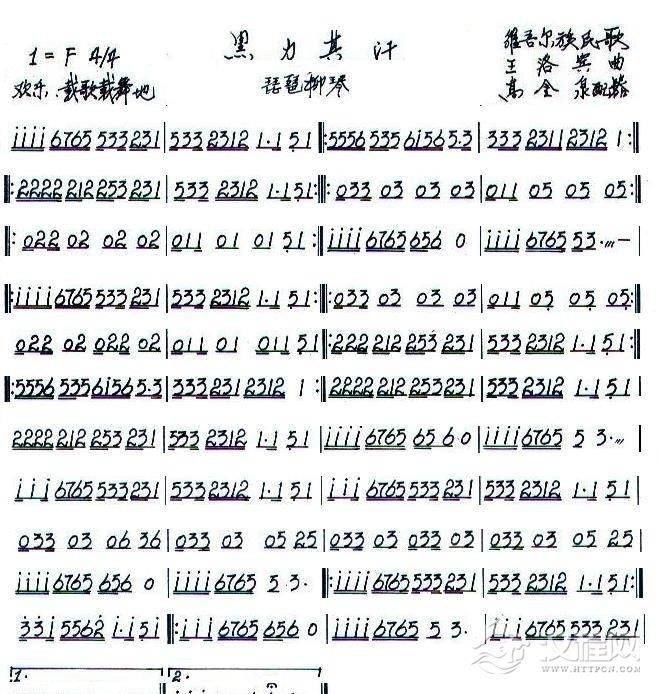 黑力其汗
1=F 4/4
欢乐，载歌载舞地
琵琶柳琴
维吾尔族民歌
王洛宾 曲
高全泉配器
iiii 6765 533 231 | 533 2312 1·1 51 :‖: 5556 535 6156 5·3 | 333 2311 2312 1 :‖
‖: 2222 212 253 231 | 533 2312 1·1 51 :‖: 033 03 03 03 | 011 05 05 05 :‖
‖: 022 02 02 02 | 011 01 01 51 :‖ iiii 6765 656 0 | iiii 6765 53· 〃 – |
‖: iiii 6765 533 231 | 533 2312 1·1 51 :‖: 033 03 03 03 | 011 05 05 05 :‖
022 02 022 02 | 011 01 011 51 :‖: 222 212 253 231 | 533 2312 1·1 51 :‖
‖: 5556 535 6156 5·3 | 333 231 2312 1 :‖ 2222 212 253 231 | 533 2312 1·1 51 |
2222 212 253 231 | 533 2312 1·1 51 | iiii 6765 65 6 0 | iiii 6765 5 3· 〃 |
iii 6765 533 231 | 533 2312 1·1 51 | iii 6765 533 231 | 533 2312 1·1 51 |
033 03 06 36 | 033 03 05 25 | 033 03 03 03 | 033 03 05 25 |
iiii 6765 656 0 | iiii 6765 5 3· |: iiii 6765 533 231 | 533 2312 1·1 51 :‖
33i 5562 i·i 51 ‖: iii 6765 656 0 | iiii 6765 5 3· | iiii 6765 533 231 |
1. 2.
汉程网
WWW.HTTPCN.COM